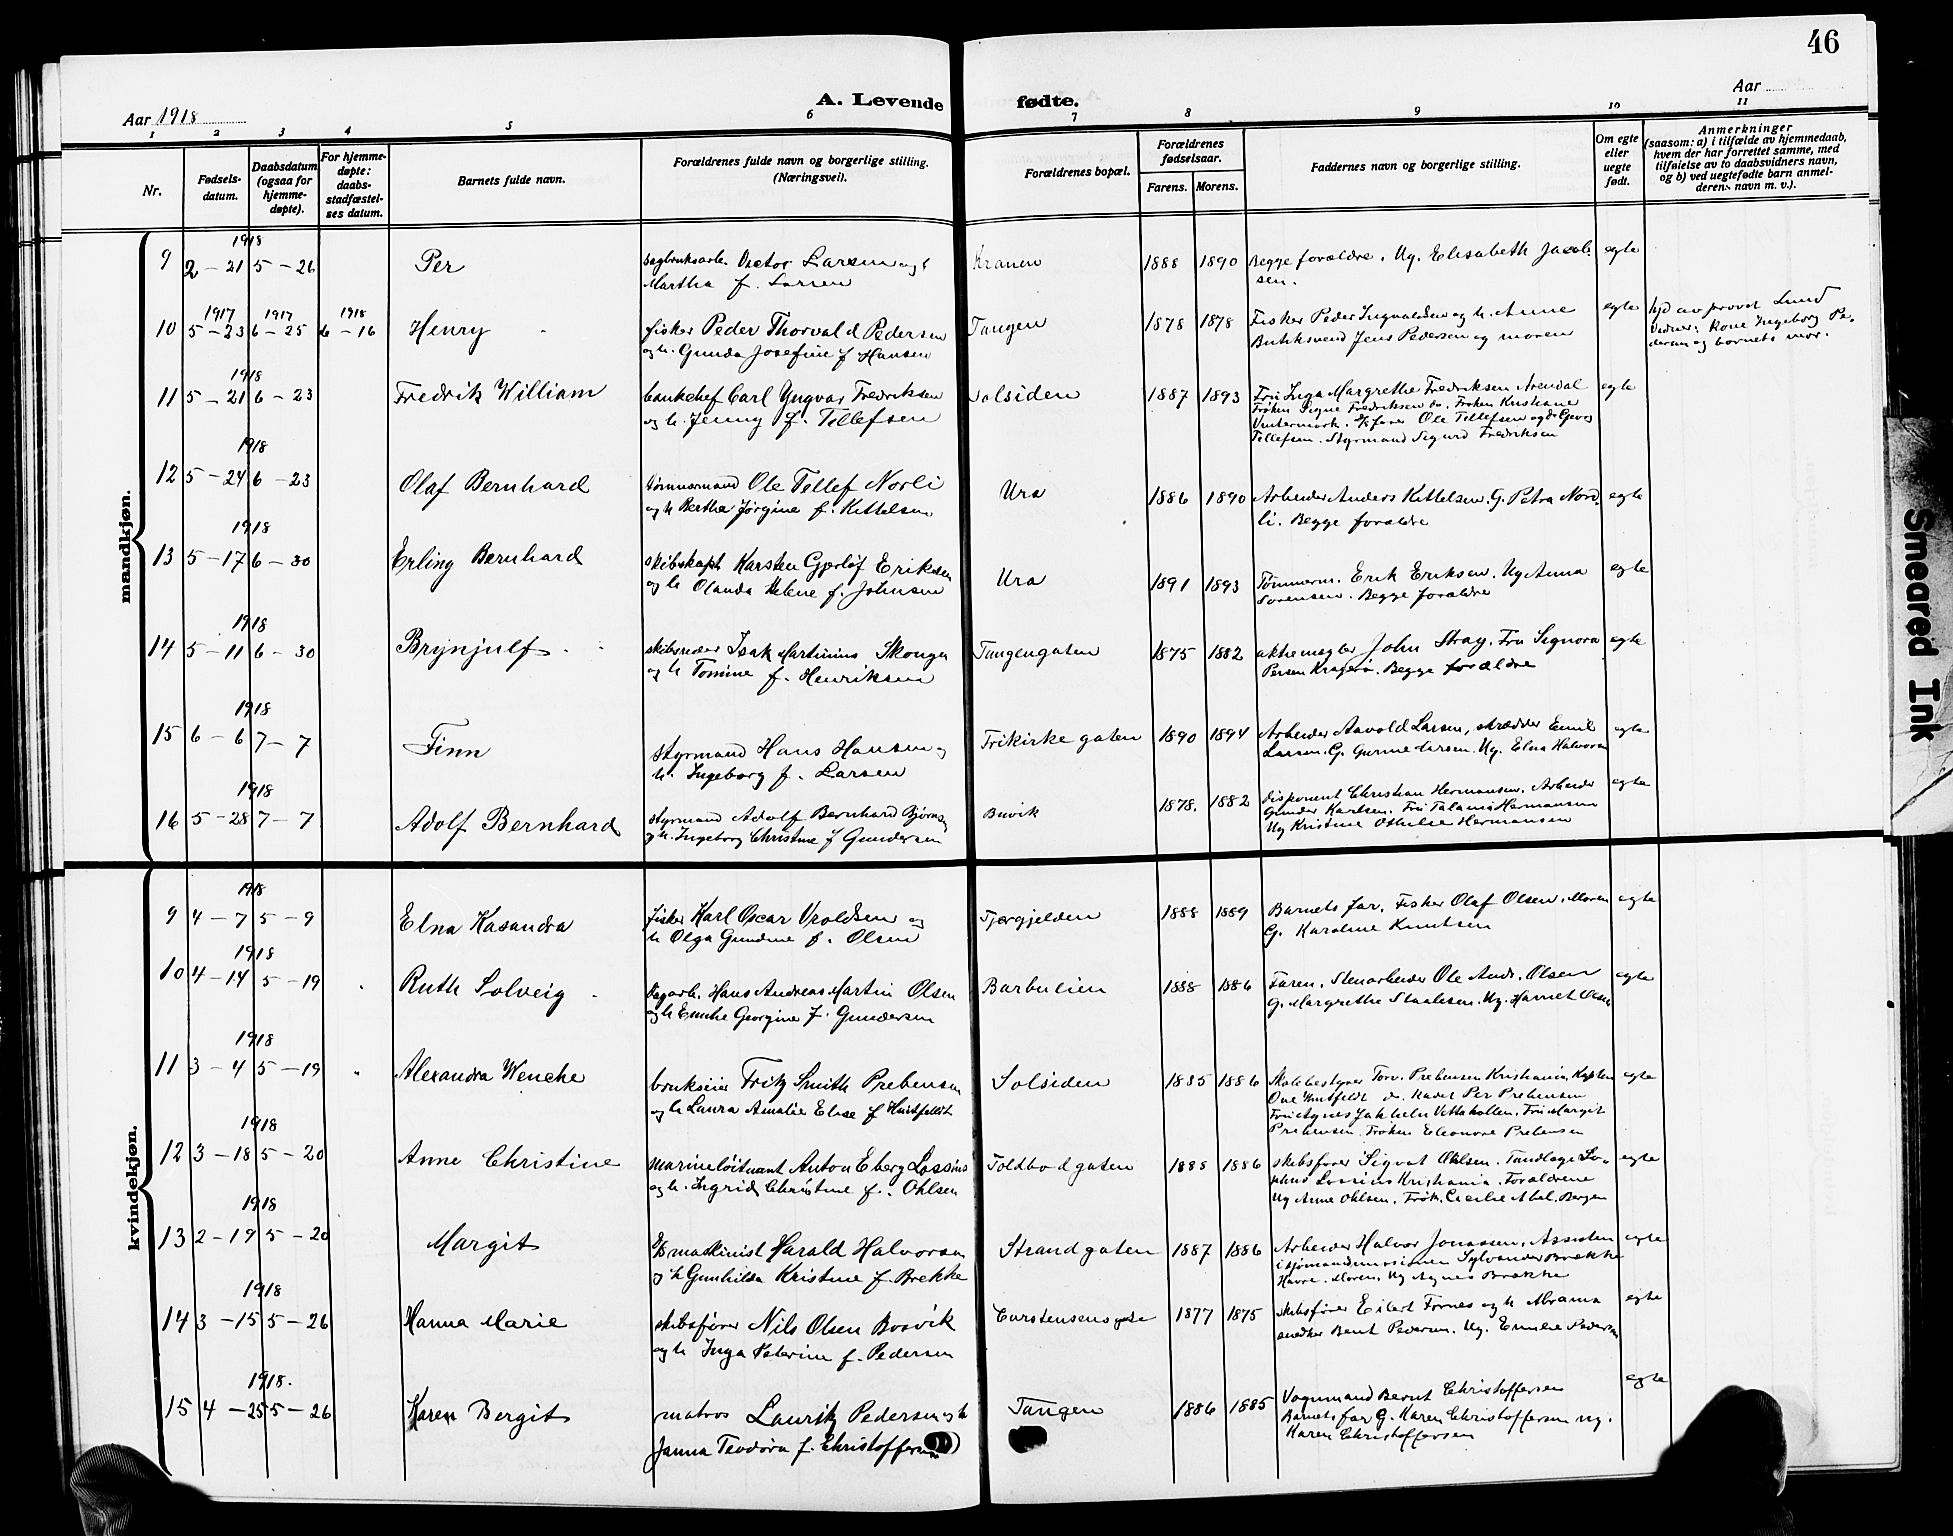 46
A. Levende fødte.
Aar 1918
Aar
1 2 3 4 5 6 7 8 9 10 11
Nr.
Fødsels-
datum.
Daabsdatum
(ogsaa for
hjemme-
døpte).
For hjemme-
døpte:
daabs-
stadfæstel-
ses datum.
Barnets fulde navn.
Forældrenes fulde navn og borgerlige stilling.
(Næringsvei).
Forældrenes bopæl.
Forældrenes
fødselsaar.
Farens. Morens.
Faddernes navn og borgerlige stilling.
Om egte
eller
uegte
født.
Anmerkninger
(saasom: a) i tilfælde av hjemmedaab,
hvem der har forrettet samme, med
tilføielse av to daabsvidners navn,
og b) ved uegtefødte barn anmel-
derens navn m. v.).
mandkjøn.
1918
9 2 – 21 5 – 26 Per
Victor Larsen og h
Martha f. Larsen
Kranen 1888 1890
Begge forældre. Ug. Elisabeth Jacob-
sen.
egte
1917 1917 1918
10 5 – 23 6 – 25 6 – 16 Henry
fisker Peder Thorvald Pedersen
og h. Gunda Josefine f Hansen
Tangen 1878 1878
Fisker Peder Ingvaldsen og h. Anne
Jens Pedersen og moren
egte
hjd av provst Lund
Vidner: kone Ingeborg Pe-
dersen og barnets mor.
1918
11 5 – 21 6 – 23 Fredrik William
bankchef Carl Yngvar Fredriksen
og h. Jenny f. Tellefsen
Solsiden 1887 1893
Fru Inga Margrethe Fredriksen Arendal
Frøken Signe Fredriksen do. Frøken Kristiane
Vintermark. Ole Tellefsen og
Tellefsen. Styrmand Sigurd Fredriksen
egte
1918
12 5 – 24 6 – 23 Olaf Bernhard
tømmermand Ole Tellef Norli
og h Berthe Jørgine f. Kittelsen
Ura 1886 1890
Arbeider Anders Kittelsen. G. Petra Nord-
li. Begge forældre
egte
1918
13 5 – 17 6 – 30 Erling Bernhard
skibskapt Karsten Gjerløf Eriksen
og h Olanda Helene f. Johnsen
Ura 1891 1893
Tømmerm. Erik Eriksen. Ug Anna
Sorensen. Begge forældre
egte
1918
14 5 – 11 6 – 30 Brynjulf
skibsreder Isak Martinius
og h Tomine f. Henriksen
Tangengaten 1875 1882
aktiemegler John Stray. Fru Signora
Persen Kragerø. Begge forældre
egte
1918
15 6 – 6 7 – 7 Finn
Styrmand Hans Hansen og
h. Ingeborg f. Larsen
Frikirkegaten 1890 1894
Arbeider Aavold Larsen, skrædder Emil
Larsen. G. Gunne Larsen. Ug. Elna Halvorsen
egte
1918
16 5 – 28 7 – 7 Adolf Bernhard
Styrmand Adolf Bernhard
og h. Ingeborg Christine f Gundersen
Buvik 1878. 1882
Disponent Christian Hermansen, Arbeider
Gunder Karlsen. Fru Hermansen
Ug Kristine Othilie Hermansen
egte
kvindekjøn.
1918
9 4 – 7 5 – 9 Elna Kasandra
fisker Karl Oscar Vroldsen og
h Olga Gundine f. Olsen
1888 1889
Barnets far. Fisker Olaf Olsen. Moren
G. Karoline Knutsen
egte
1918
10 4 – 14 5 – 19 Ruth Solveig
Hans Andreas Martin Olsen
og h Emilie Georgine f. Gundersen
Barbulien 1888 1886
Faren. Stenarbeider Ole Andr. Olsen
G. Margrethe Staalesen. Ug. Harriet Olsen
egte
1918
11 3 – 4 5 – 19 Alexandra Wenche
brukseier Fritz Smith Prebensen
og h Laura Amalie Elise f Huitfeldt
Solsiden 1885 1886
Skolebestyrer Torv. Prebensen Kristiania, Kaptein
Ove Huitfeldt do. Kadet Per Prebensen
Fru Agnes Vettakollen. Fru Margit
Prebensen. Frøken Eleonore Prebensen
egte
1918
12 3 – 18 5 – 20 Anne Christine
Marineløitnant Anton Lossius
og h. Ingrid Christine f. Ohlsen
Toldbodgaten 1885 1886
skibsfører Sigvat Ohlsen. Tandlæge
Lossius Kristiania. Forældrene
Ug Anne Ohlsen. Frøk. Cecilie Abel. Bergen
egte
1918
13 2 – 19 5 – 20 Margit
maskinist Harald Halvorsen
og h Gunhilda Kristine f. Brekke
Strandgaten 1887 1886
Arbeider Halvor Jonassen, Assistent
i sjømandsmissionen Sylvander Brekke
Havre. Moren. Ug Agnes Brekke
egte
1918
14 3 – 15 5 – 26 Hanna Marie
skibsfører Nils Olsen Bosvik
og h Inga Katerine f. Pedersen
Carstensensgate 1877 1875
skibsfører Eilert Fornes og h Abrama
snedker Bent Pedersen. Ug. Emilie Pedersen
egte
1918.
15 4 – 25 5 – 26 Karen Bergit
matros Lauritz Pedersen og h
Janna Teodora f. Christoffersen
Tangen 1886 1885
Vognmand Bernt Christoffersen
Barnets far G. Karen Christoffersen ug.
Karen Christoffersen
egte
Smeared Ink